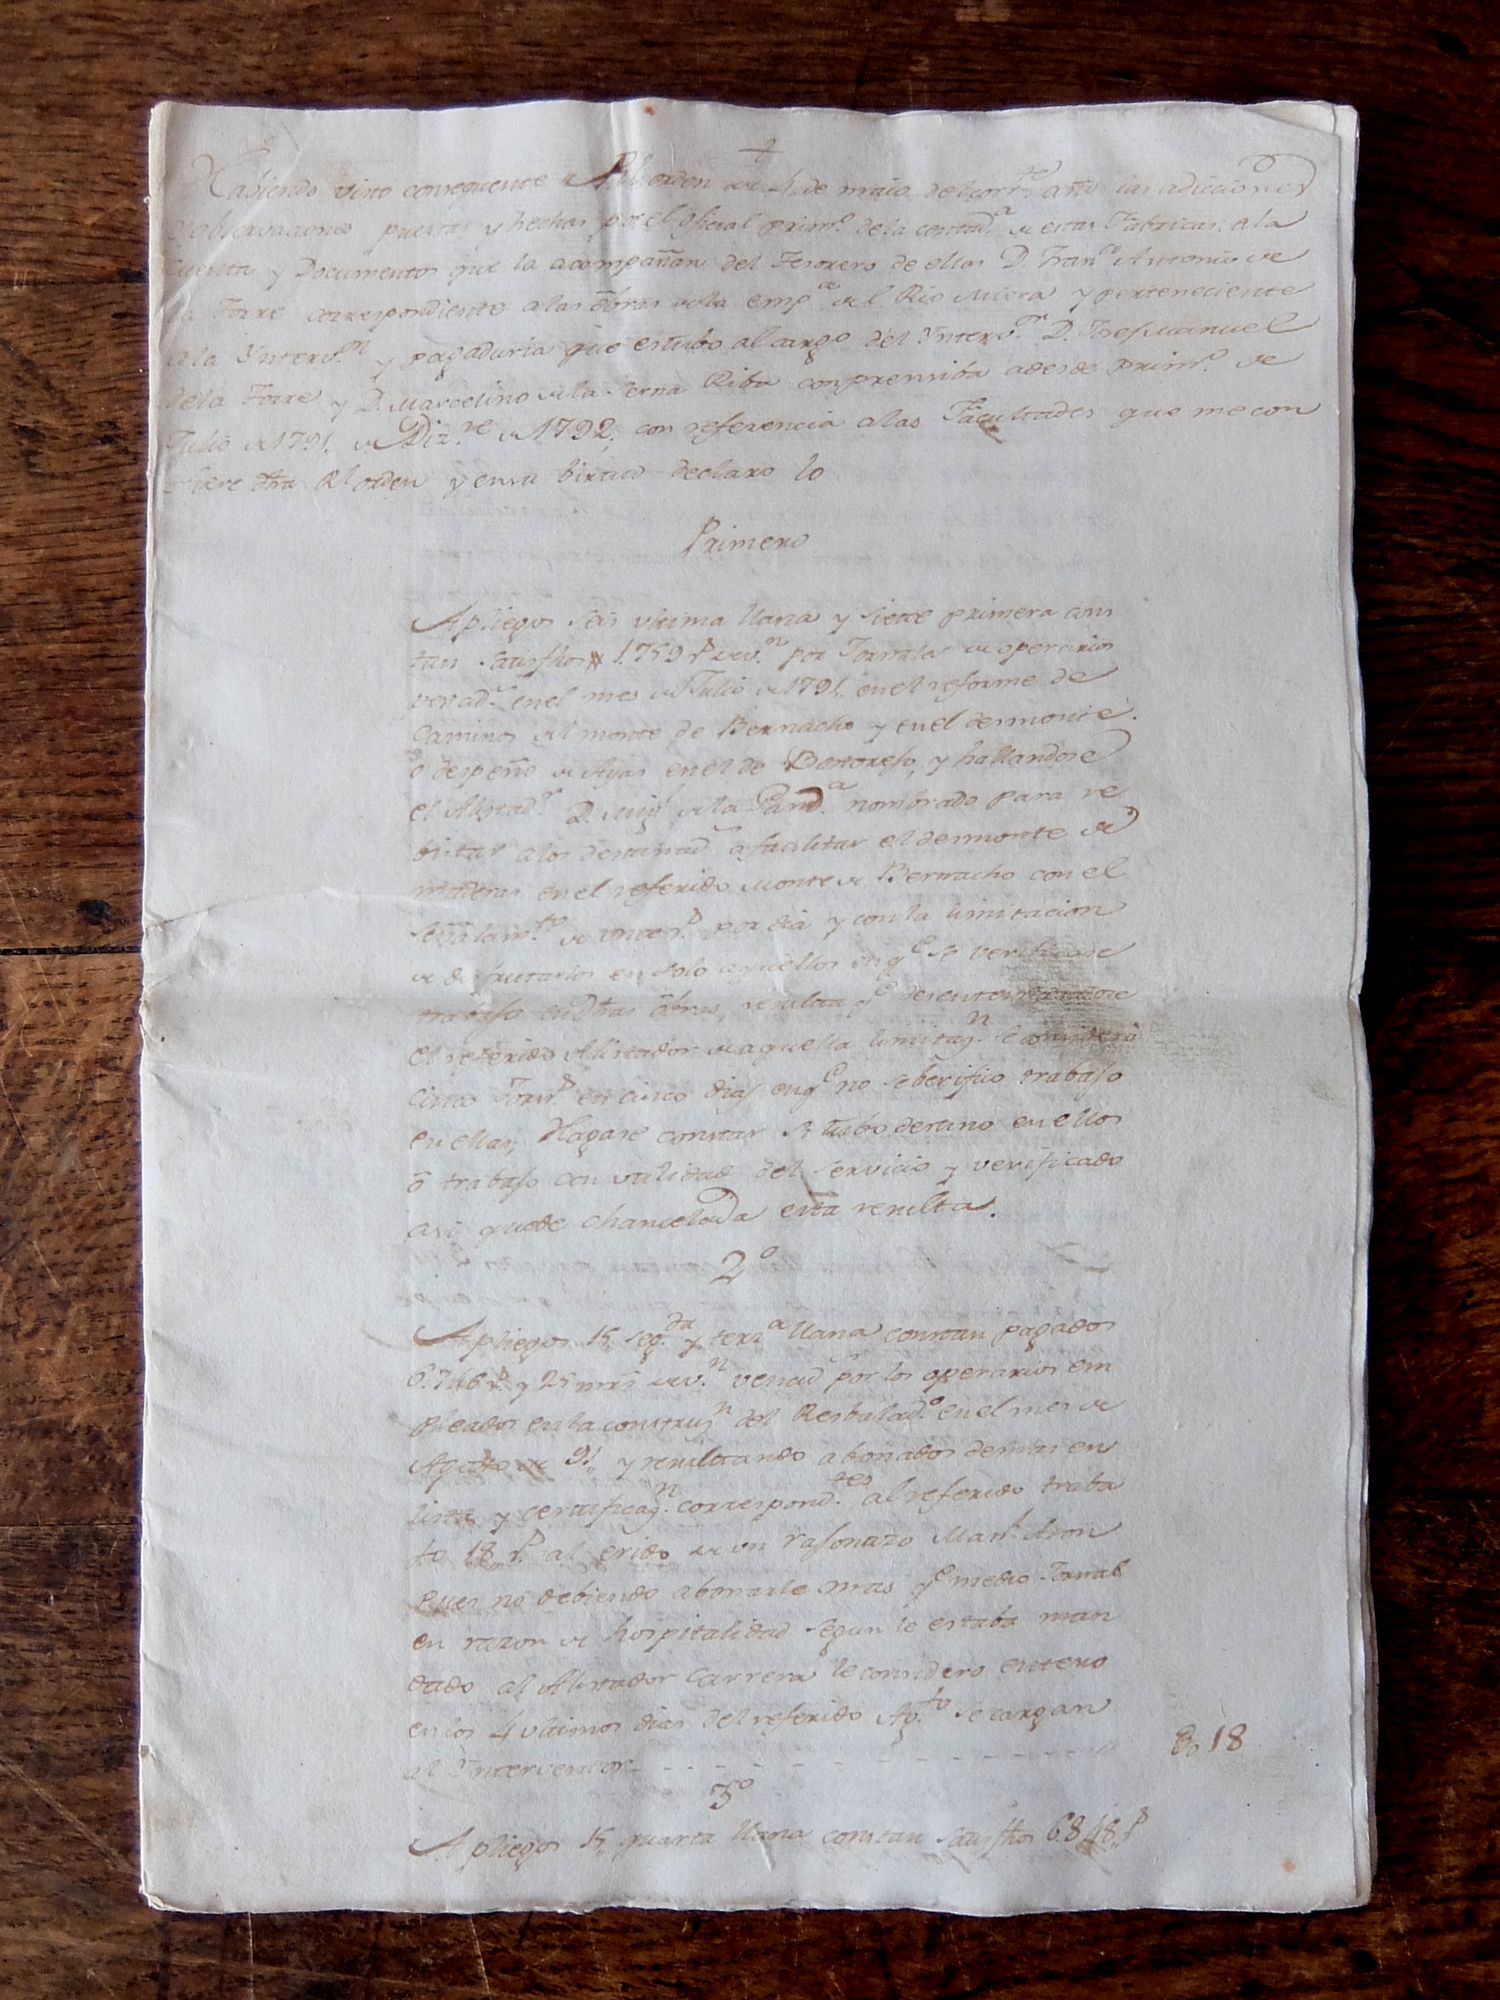 +
Habiendo visto consequente a Rl orden de 4 de maio del corrte año las adicciones
y observaciones puestas y hechas por el oficial primo de la contada de estas Fabricas, a la
Cuenta y Documentos que la acompañan del Tesorero de ellas D. Franco Antonio de
la Torre correspondiente a las obras de la empa del Rio Miera y perteneciente
a la Yntervon y pagaduria que estubo al cargo del Yntervor D. Josef Manuel
de la Torre y D. Marcelino de la Serna Riba conprensiba a desde primo de
Julio de 1791, a Dizre de 1792, con referencia a las Facultades que me con
fiere dha Rl orden y en su birtud declaro lo
Primero
A pliegos seis ultima llana y siete primera cons
tan satisfhos 1.759 rs de von por Jornales de operarios
vencads en el mes de Julio de 1791, en el reforme de
Caminos del monte de Bernacho y en el desmonte
o despeño de Ayas en el de , y hallandose
el Alistador D. Migl de la nombrado para re
bistar a los destinads a facilitar el desmonte de
maderas en el referido Monte de Bernacho con el
señalamto de once rs por dia y con la limitacion
de disfrutarlos en solo aquellos en qe se verificase
trabajo en dhas obras, resulta qe desentendiendose
el referido Alistador de aquella limitazn se considerò
cinco Jorns en cinco dias en qe no se berificò trabajo
en ellas, Hagase constar si tubo destino en ellos
ò trabajo con utilidad del servicio y verificado
asi quede chancelada esta resulta.
2o
A pliegos 15, segda y terza llana constan pagados
6.746 rs y 25 mrs de von vencids por los operarios em
pleados en la construzn del Resbalado en el mes de
Agosto de 91, y resultando abonados demas en
lista y certificazn correspondtes al referido traba
jo 18 rs al erido de un rasonazo Manl
pues no debiendo abonarle mas qe medio Jornal
en razon de hospitalidad segun le estaba man
dado al Alistador Carrera le considero entero
en los 4 ultimos dias del referido Agto se cargan
al Ynterventor - - - - - - - - - - 18
3o
A pliegos 15, quarta llana constan satisfhos 6.848 rs